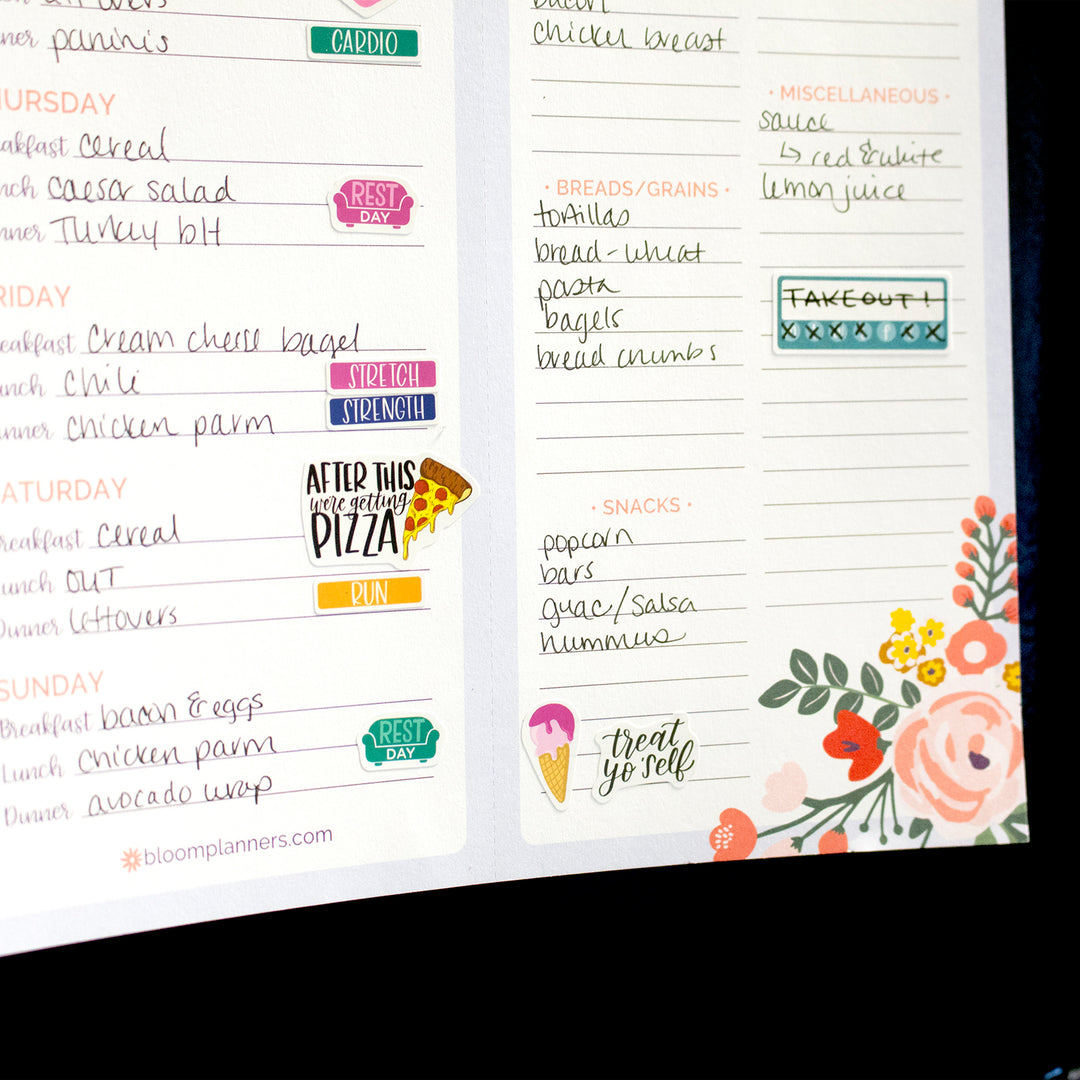 paninis
CARDIO
THURSDAY
Breakfast cereal
Lunch caesar salad
REST
DAY
Dinner Turkey blt
FRIDAY
Breakfast cream cheese bagel
Lunch chili
STRETCH
STRENGTH
Dinner chicken parm
SATURDAY
AFTER THIS
we're getting
PIZZA
Breakfast cereal
Lunch OUT
RUN
Dinner leftovers
SUNDAY
Breakfast bacon & eggs
REST
DAY
Lunch chicken parm
Dinner avocado wrap
bloomplanners.com
bacon
chicken breast
• BREADS/GRAINS •
tortillas
bread - wheat
pasta
bagels
bread crumbs
• SNACKS •
popcorn
bars
guac/salsa
hummus
treat
yo' self
• MISCELLANEOUS •
sauce
↳ red & white
lemon juice
TAKEOUT!
x x x x f x x